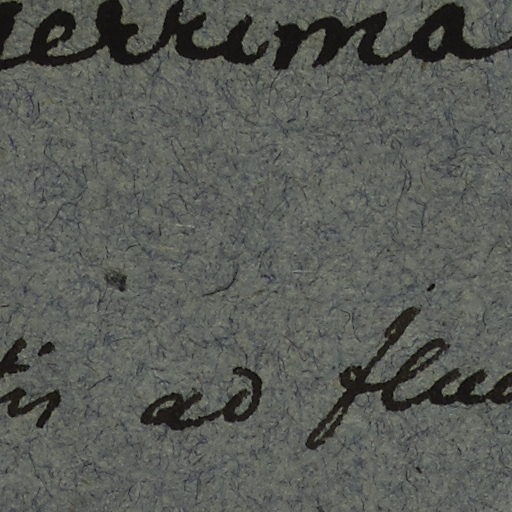 errima
tis ad flu